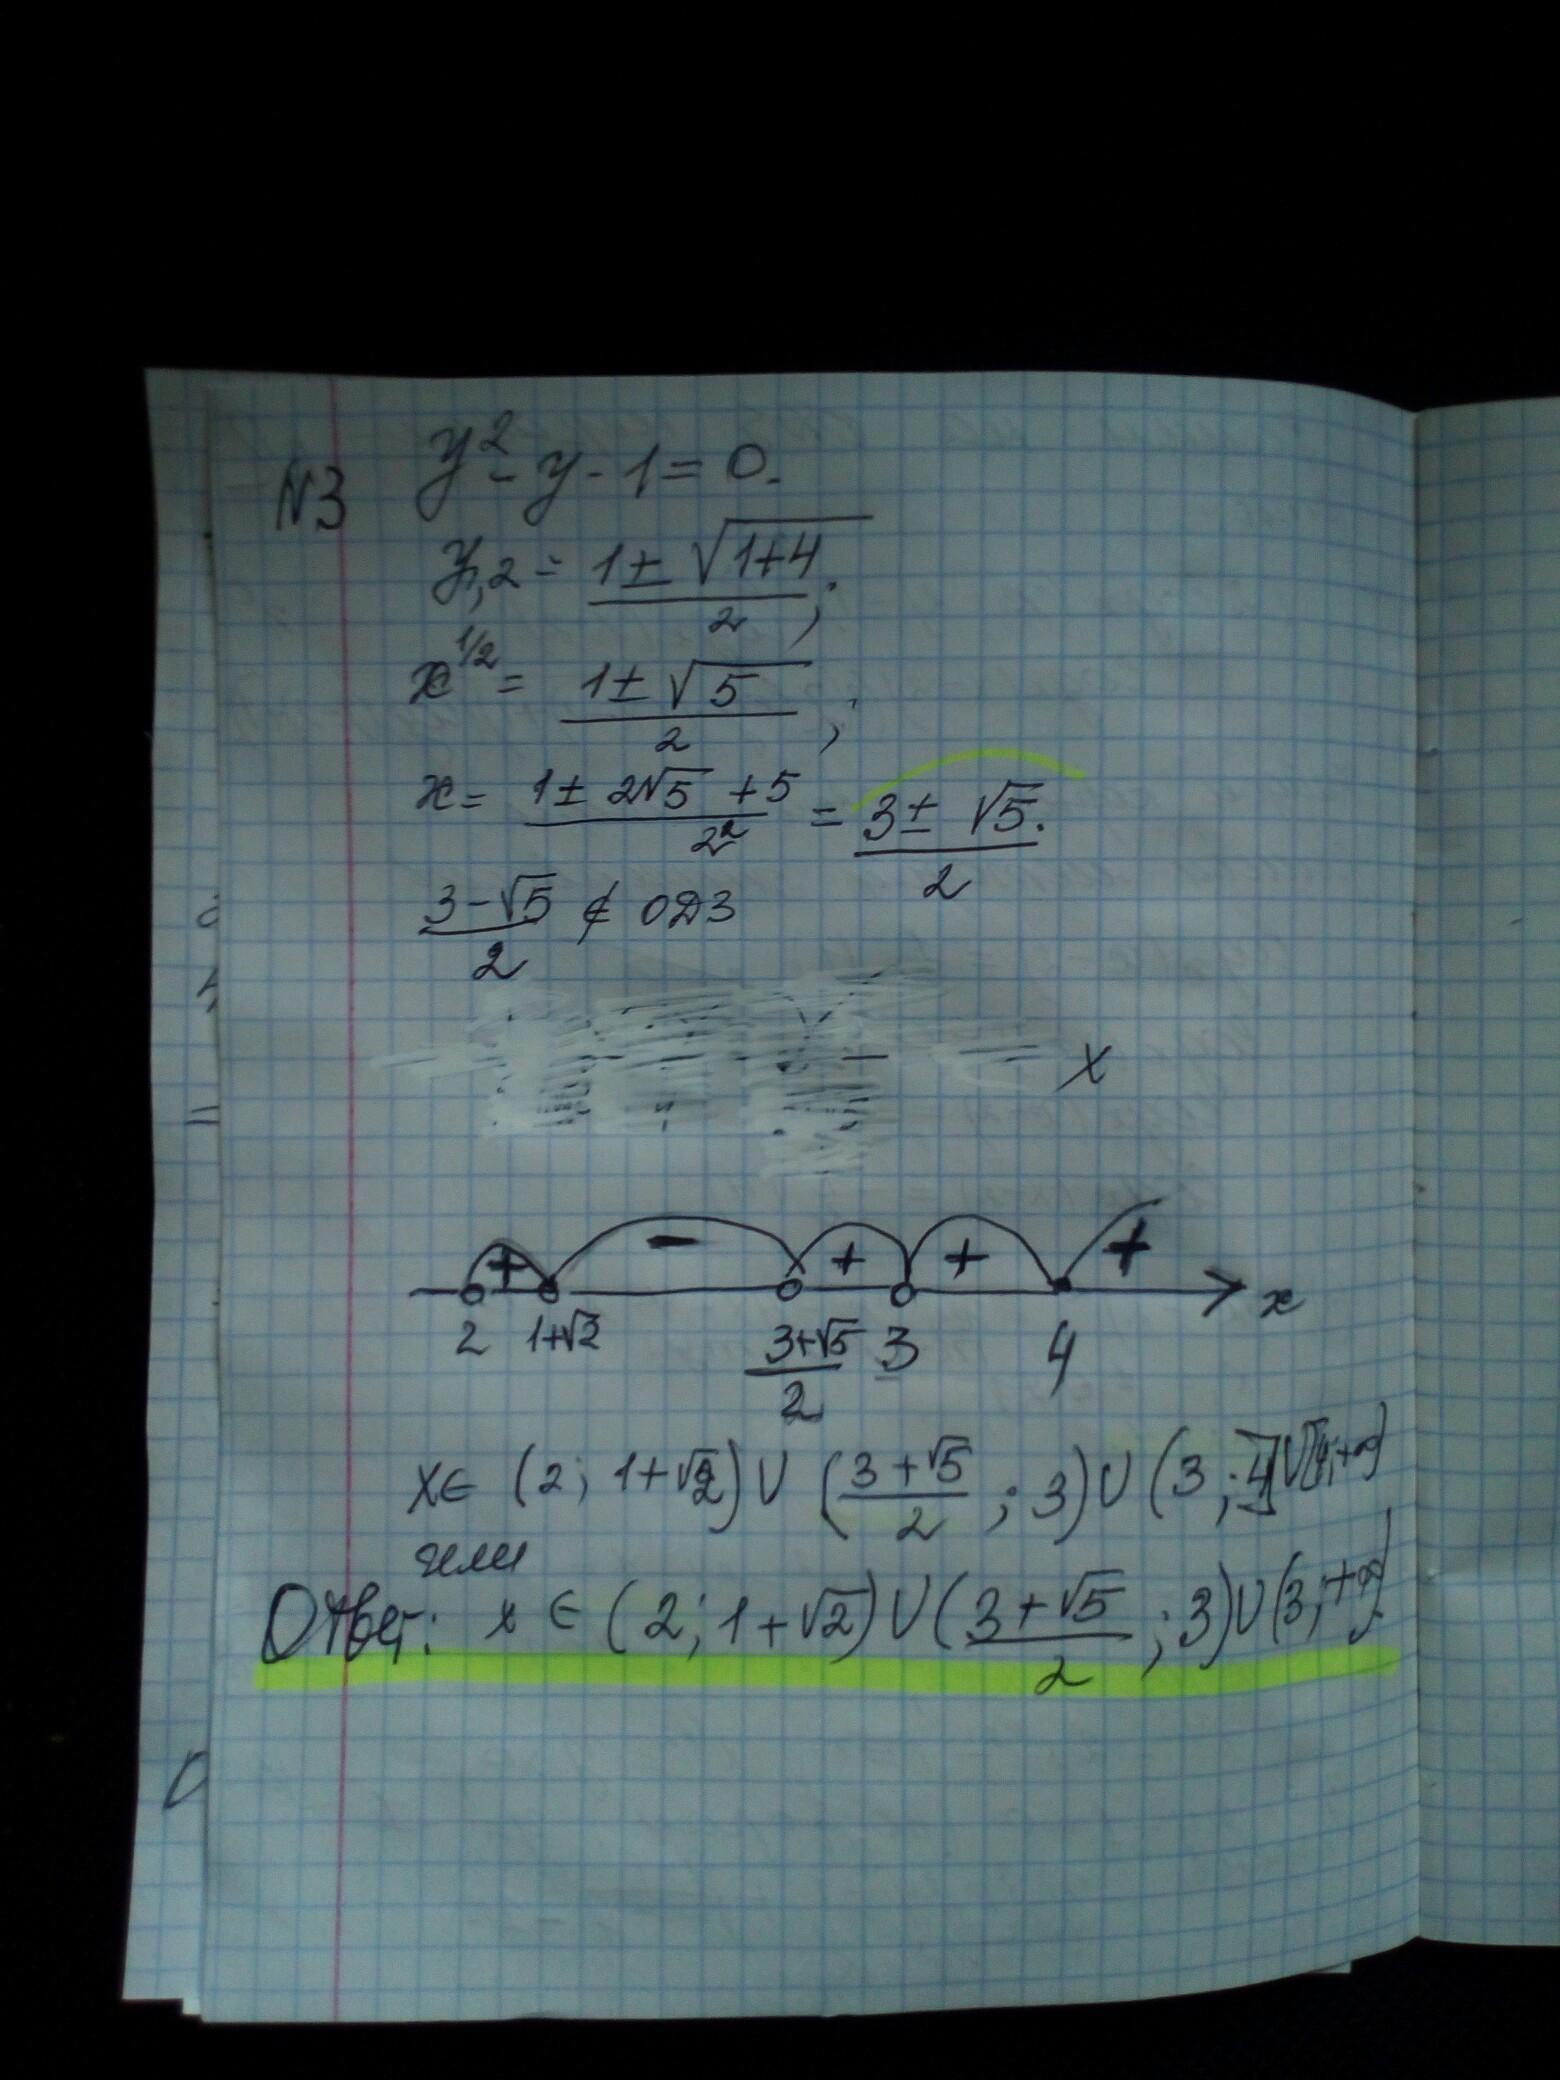 №3 y² - y - 1 = 0.
y₁,₂ = (1 ± √(1+4))/2 ;
x^(1/2) = (1 ± √5)/2 ;
x = (1 ± 2√5 + 5)/2² = (3 ± √5)/2.
(3 - √5)/2 ∉ ОДЗ
x
+ - + + +
2 1+√2 (3+√5)/2 3 4 x
x ∈ (2; 1+√2) ∪ ((3+√5)/2 ; 3) ∪ (3; 4] ∪ [4; +∞)
или
Ответ: x ∈ (2; 1+√2) ∪ ((3+√5)/2 ; 3) ∪ (3; +∞)